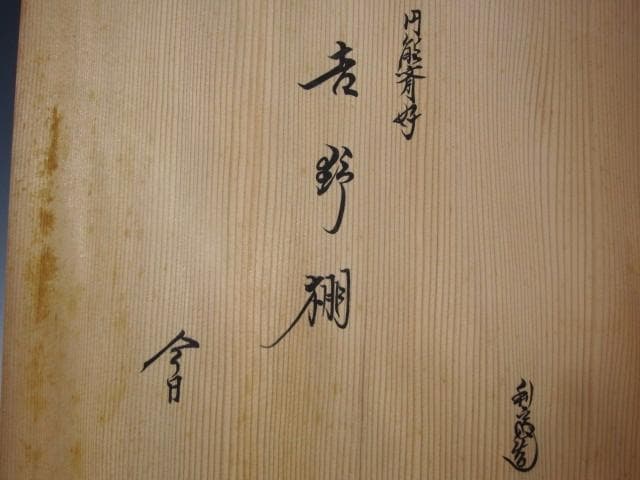 円能斎好
吉野棚
今日